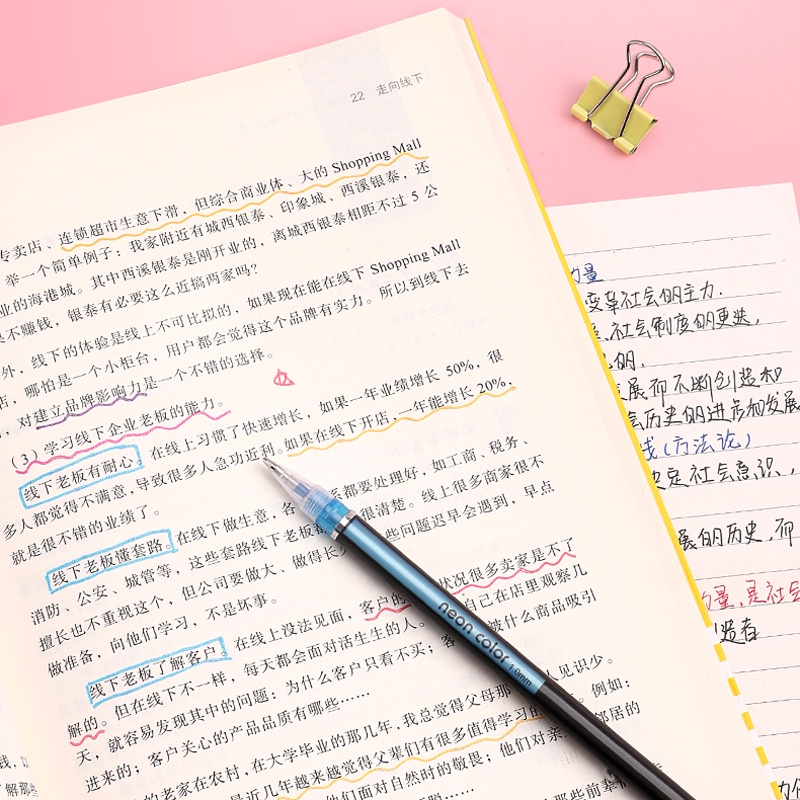 22 走向线下
专卖店、连锁超市生意下滑，但综合商业体、大的 Shopping Mall
举一个简单例子：我家附近有城西银泰、印象城、西溪银泰，还
业的海港城。其中西溪银泰是刚开业的，离城西银泰相距不过 5 公
不赚钱，银泰有必要这么近搞两家吗？
外，线下的体验是线上不可比拟的，如果现在能在线下 Shopping Mall
店，哪怕是一个小柜台，用户都会觉得这个品牌有实力。所以到线下去
，对建立品牌影响力是一个不错的选择。
（3）学习线下企业老板的能力。
线下老板有耐心。在线上习惯了快速增长，如果一年业绩增长 50%，很
多人都觉得不满意，导致很多人急功近利。如果在线下开店，一年能增长 20%，
就是很不错的业绩了。
线下老板懂套路。在线下做生意，各 系都要处理好，如工商、税务、
消防、公安、城管等，这些套路线下老板 很清楚。线上很多商家很不
擅长也不重视这个，但公司要做大、做得长 些问题迟早会遇到，早点
做准备，向他们学习，不是坏事。
线下老板了解客户。在线上没法见面，客户的 状况很多卖家是不了
解的。但在线下不一样，每天都会面对活生生的人。 自己在店里观察几
天，就容易发现其中的问题：为什么客户只看不买；客 被什么商品吸引
进来的；客户关心的产品品质有哪些……
的老家在农村，在大学毕业的那几年，我总觉得父母那 人见识少。
是最近几年越来越觉得父辈们有很多值得学习的 。例如：
他们面对自然时的敬畏；他们对亲 邻居的
那些前辈
力量
变革社会的主力.
社会制度的更迭,
的.
发展而不断创造和
会历史的进步和发展
线(方法论)
决定社会意识,
展的历史,而
力量,是社会
创造者
neon color 1.0mm